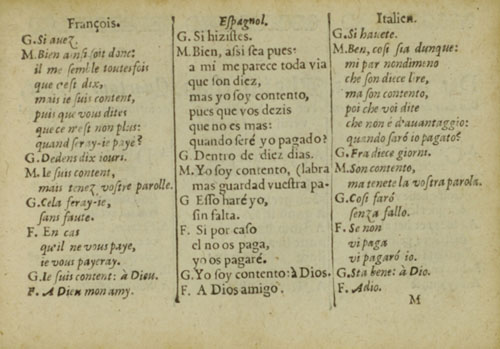 François.
G. Si auez.
M. Bien ainsi soit donc:
il me semble toutesfois
que c'est dix,
mais ie suis content,
puis que vous dites
que ce n'est non plus:
quand seray-ie payé?
G. Dedens dix iours.
M. Ie suis content,
mais tenez vostre parolle.
G. Cela feray-ie,
sans faute.
F. En cas
qu'il ne vous paye,
ie vous payeray.
G. Ie suis content: à Dieu.
F. A Dieu mon amy.
Espagnol.
G. Si hizistes.
M. Bien, assi sea pues:
a mi me parece toda via
que son diez,
mas yo soy contento,
pues que vos dezis
que no es mas:
quando seré yo pagado?
G. Dentro de diez dias.
M. Yo soy contento, (labra
mas guardad vuestra pa-
G Esso haré yo,
sin falta.
F. Si por caso
el no os paga,
yo os pagaré.
G. Yo soy contento: à Dios.
F. A Dios amigo.
Italien.
G. Si hauete.
M. Ben, cosi sia dunque:
mi par nondimeno
che son diece lire,
ma son contento,
poi che voi dite
che non è d'auantaggio:
quando saró io pagato?
G. Fra diece giorni.
M. Son contento,
ma tenete la vostra parola.
G. Cosi faró
senza fallo.
F. Se non
vi paga
vi pagaró io.
G. Sta bene: à Dio.
F. Adio.
M